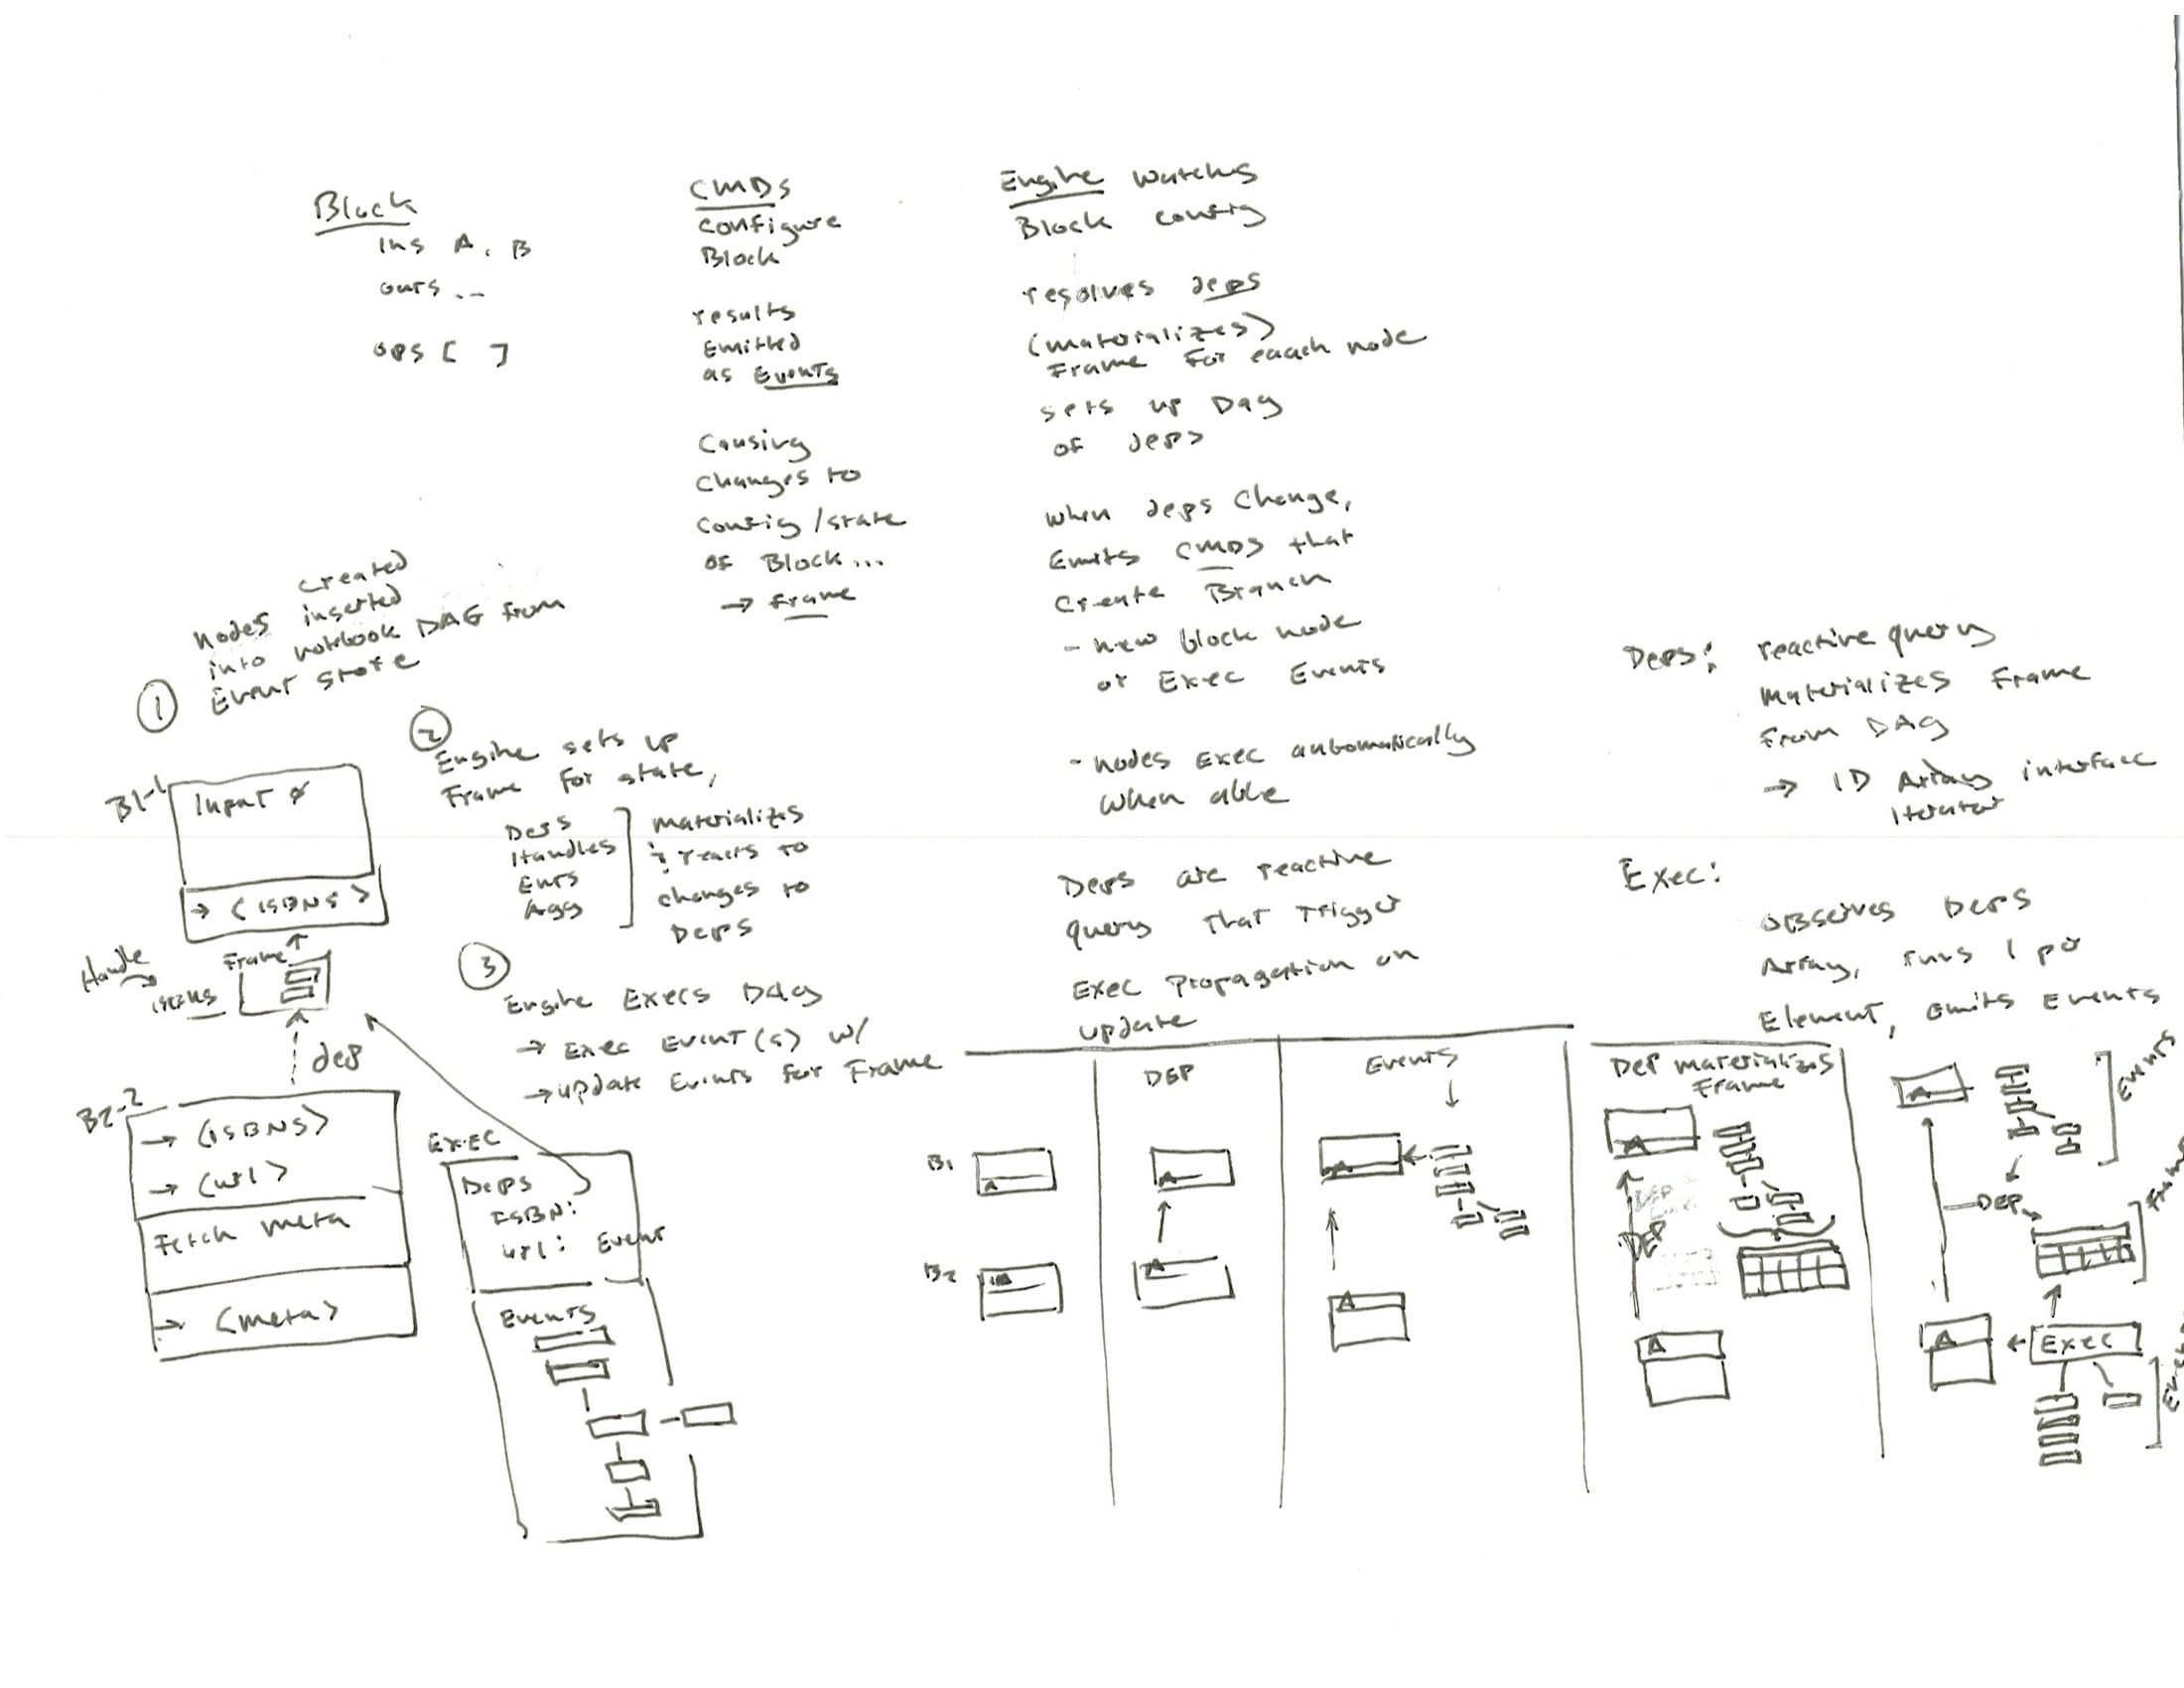 Block
ins A, B
outs ...
ops [ ]
CMDs
configure
Block
results
Emitted
as Events
Causing
changes to
config/state
of Block...
→ Frame
Engine watches
Block config
resolves deps
(materializes)
Frame for eaach node
sets up Dag
of deps
when deps change,
Emits CMDs that
Create Branch
- new block node
or Exec Events
- nodes Exec automatically
when able
Deps are reactive
query that trigger
Exec propagation on
update
Deps: reactive query
materializes Frame
from DAG
→ 1D Array interface
Iterator
Exec:
observes Deps
Array, runs 1 per
Element, emits Events
created
nodes inserted
into notebook DAG from
Event store
1
2
Engine sets up
Frame for state,
Deps
Handles
Evts
Agg
materializes
& reacts to
changes to
Deps
3
Engine Execs DAG
→ Exec Event(s) w/
→ update Events for Frame
B1-1
Input
→ (ISBNS)
Handle
Frame
ISBNS
dep
B2-2
→ (ISBNS)
→ (url)
Fetch meta
→ (meta)
EXEC
Deps
ISBN:
url: Event
Events
B1
A
B2
DEP
A
A
Events
A
A
Dep materializes
Frame
A
DEP
A
A
Events
DEP
A
Exec